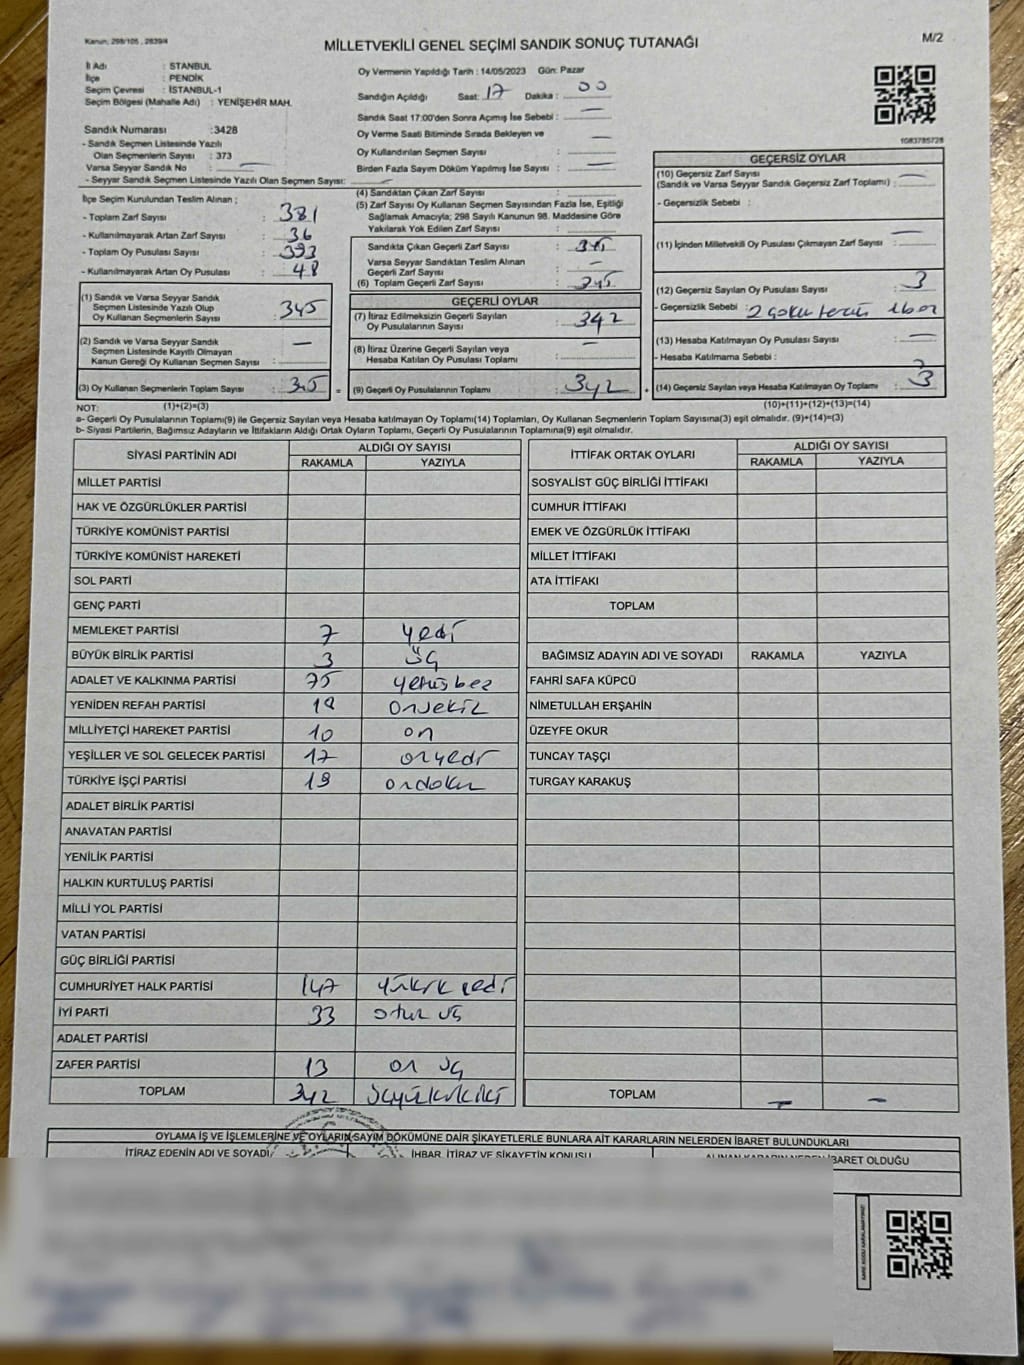 Kanun, 298/105 , 2839/4
MİLLETVEKİLİ GENEL SEÇİMİ SANDIK SONUÇ TUTANAĞI
M/2
İl Adı : STANBUL
İlçe : PENDİK
Seçim Çevresi : İSTANBUL-1
Seçim Bölgesi (Mahalle Adı) : YENİŞEHİR MAH.
Sandık Numarası :3428
- Sandık Seçmen Listesinde Yazılı
Olan Seçmenlerin Sayısı : 373
Varsa Seyyar Sandık No : —
- Seyyar Sandık Seçmen Listesinde Yazılı Olan Seçmen Sayısı:
Oy Vermenin Yapıldığı Tarih : 14/05/2023 Gün: Pazar
Sandığın Açıldığı Saat: 17 Dakika : 00
Sandık Saat 17:00'den Sonra Açımış İse Sebebi : —
Oy Verme Saati Bitiminde Sırada Bekleyen ve
Oy Kullandırılan Seçmen Sayısı : —
Birden Fazla Sayım Döküm Yapılmış İse Sayısı : —
1083785728
İlçe Seçim Kurulundan Teslim Alınan ;
- Toplam Zarf Sayısı : 381
- Kullanılmayarak Artan Zarf Sayısı : 36
- Toplam Oy Pusulası Sayısı : 393
- Kullanılmayarak Artan Oy Pusulası : 48
(4) Sandıktan Çıkan Zarf Sayısı :
(5) Zarf Sayısı Oy Kullanan Seçmen Sayısından Fazla İse, Eşitliği
Sağlamak Amacıyla; 298 Sayılı Kanunun 98. Maddesine Göre
Yakılarak Yok Edilen Zarf Sayısı :
Sandıkta Çıkan Geçerli Zarf Sayısı : 345
Varsa Seyyar Sandıktan Teslim Alınan
Geçerli Zarf Sayısı : —
(6) Toplam Geçerli Zarf Sayısı : 345
GEÇERSİZ OYLAR
(10) Geçersiz Zarf Sayısı
(Sandık ve Varsa Seyyar Sandık Geçersiz Zarf Toplamı) : —
- Geçersizlik Sebebi :
(11) İçinden Milletvekili Oy Pusulası Çıkmayan Zarf Sayısı : —
(12) Geçersiz Sayılan Oy Pusulası Sayısı : 3
- Geçersizlik Sebebi :
(13) Hesaba Katılmayan Oy Pusulası Sayısı : —
- Hesaba Katılmama Sebebi :
(14) Geçersiz Sayılan veya Hesaba Katılmayan Oy Toplamı : 3
(10)+(11)+(12)+(13)=(14)
(1) Sandık ve Varsa Seyyar Sandık
Seçmen Listesinde Yazılı Olup
Oy Kullanan Seçmenlerin Sayısı : 345
(2) Sandık ve Varsa Seyyar Sandık
Seçmen Listesinde Kayıtlı Olmayan
Kanun Gereği Oy Kullanan Seçmen Sayısı : —
(3) Oy Kullanan Seçmenlerin Toplam Sayısı : 345 =
GEÇERLİ OYLAR
(7) İtiraz Edilmeksizin Geçerli Sayılan
Oy Pusulalarının Sayısı : 342
(8) İtiraz Üzerine Geçerli Sayılan veya
Hesaba Katılan Oy Pusulası Toplamı : —
(9) Geçerli Oy Pusulalarının Toplamı : 342 +
NOT: (1)+(2)=(3)
a- Geçerli Oy Pusulalarının Toplamı(9) ile Geçersiz Sayılan veya Hesaba katılmayan Oy Toplamı(14) Toplamları, Oy Kullanan Seçmenlerin Toplam Sayısına(3) eşit olmalıdır. (9)+(14)=(3)
b- Siyasi Partilerin, Bağımsız Adayların ve İttifakların Aldığı Ortak Oyların Toplamı, Geçerli Oy Pusulalarının Toplamına(9) eşit olmalıdır.
SİYASİ PARTİNİN ADI ALDIĞI OY SAYISI
RAKAMLA YAZIYLA
MİLLET PARTİSİ
HAK VE ÖZGÜRLÜKLER PARTİSİ
TÜRKİYE KOMÜNİST PARTİSİ
TÜRKİYE KOMÜNİST HAREKETİ
SOL PARTİ
GENÇ PARTİ
MEMLEKET PARTİSİ 7 yedi
BÜYÜK BİRLİK PARTİSİ 3 üç
ADALET VE KALKINMA PARTİSİ 75 yetmişbeş
YENİDEN REFAH PARTİSİ 18 onsekiz
MİLLİYETÇİ HAREKET PARTİSİ 10 on
YEŞİLLER VE SOL GELECEK PARTİSİ 17 onyedi
TÜRKİYE İŞÇİ PARTİSİ 19 ondokuz
ADALET BİRLİK PARTİSİ
ANAVATAN PARTİSİ
YENİLİK PARTİSİ
HALKIN KURTULUŞ PARTİSİ
MİLLİ YOL PARTİSİ
VATAN PARTİSİ
GÜÇ BİRLİĞİ PARTİSİ
CUMHURİYET HALK PARTİSİ 147 yüzkırk yedi
İYİ PARTİ 33 otuz üç
ADALET PARTİSİ
ZAFER PARTİSİ 13 on üç
TOPLAM 342 üçyüzkırkiki
İTTİFAK ORTAK OYLARI ALDIĞI OY SAYISI
RAKAMLA YAZIYLA
SOSYALİST GÜÇ BİRLİĞİ İTTİFAKI
CUMHUR İTTİFAKI
EMEK VE ÖZGÜRLÜK İTTİFAKI
MİLLET İTTİFAKI
ATA İTTİFAKI
TOPLAM
BAĞIMSIZ ADAYIN ADI VE SOYADI RAKAMLA YAZIYLA
FAHRİ SAFA KÜPCÜ
NİMETULLAH ERŞAHİN
ÜZEYFE OKUR
TUNCAY TAŞÇI
TURGAY KARAKUŞ
TOPLAM — —
OYLAMA İŞ VE İŞLEMLERİNE VE OYLARIN SAYIM DÖKÜMÜNE DAİR ŞİKAYETLERLE BUNLARA AİT KARARLARIN NELERDEN İBARET BULUNDUKLARI
İTİRAZ EDENİN ADI VE SOYADI İHBAR, İTİRAZ VE ŞİKAYETİN KONUSU ALINAN KARARIN NEDEN İBARET OLDUĞU
KARE KODU KARALAMAYINIZ